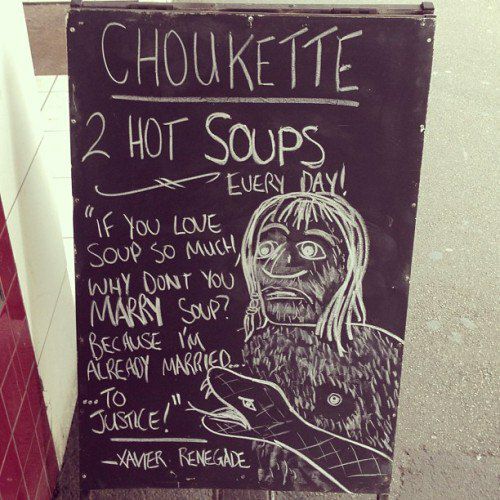 CHOUKETTE
2 HOT SOUPS
EVERY DAY!
"IF YOU LOVE
SOUP SO MUCH,
WHY DON'T YOU
MARRY SOUP?
BECAUSE I'M
ALREADY MARRIED...
...TO
JUSTICE!"
—XAVIER RENEGADE